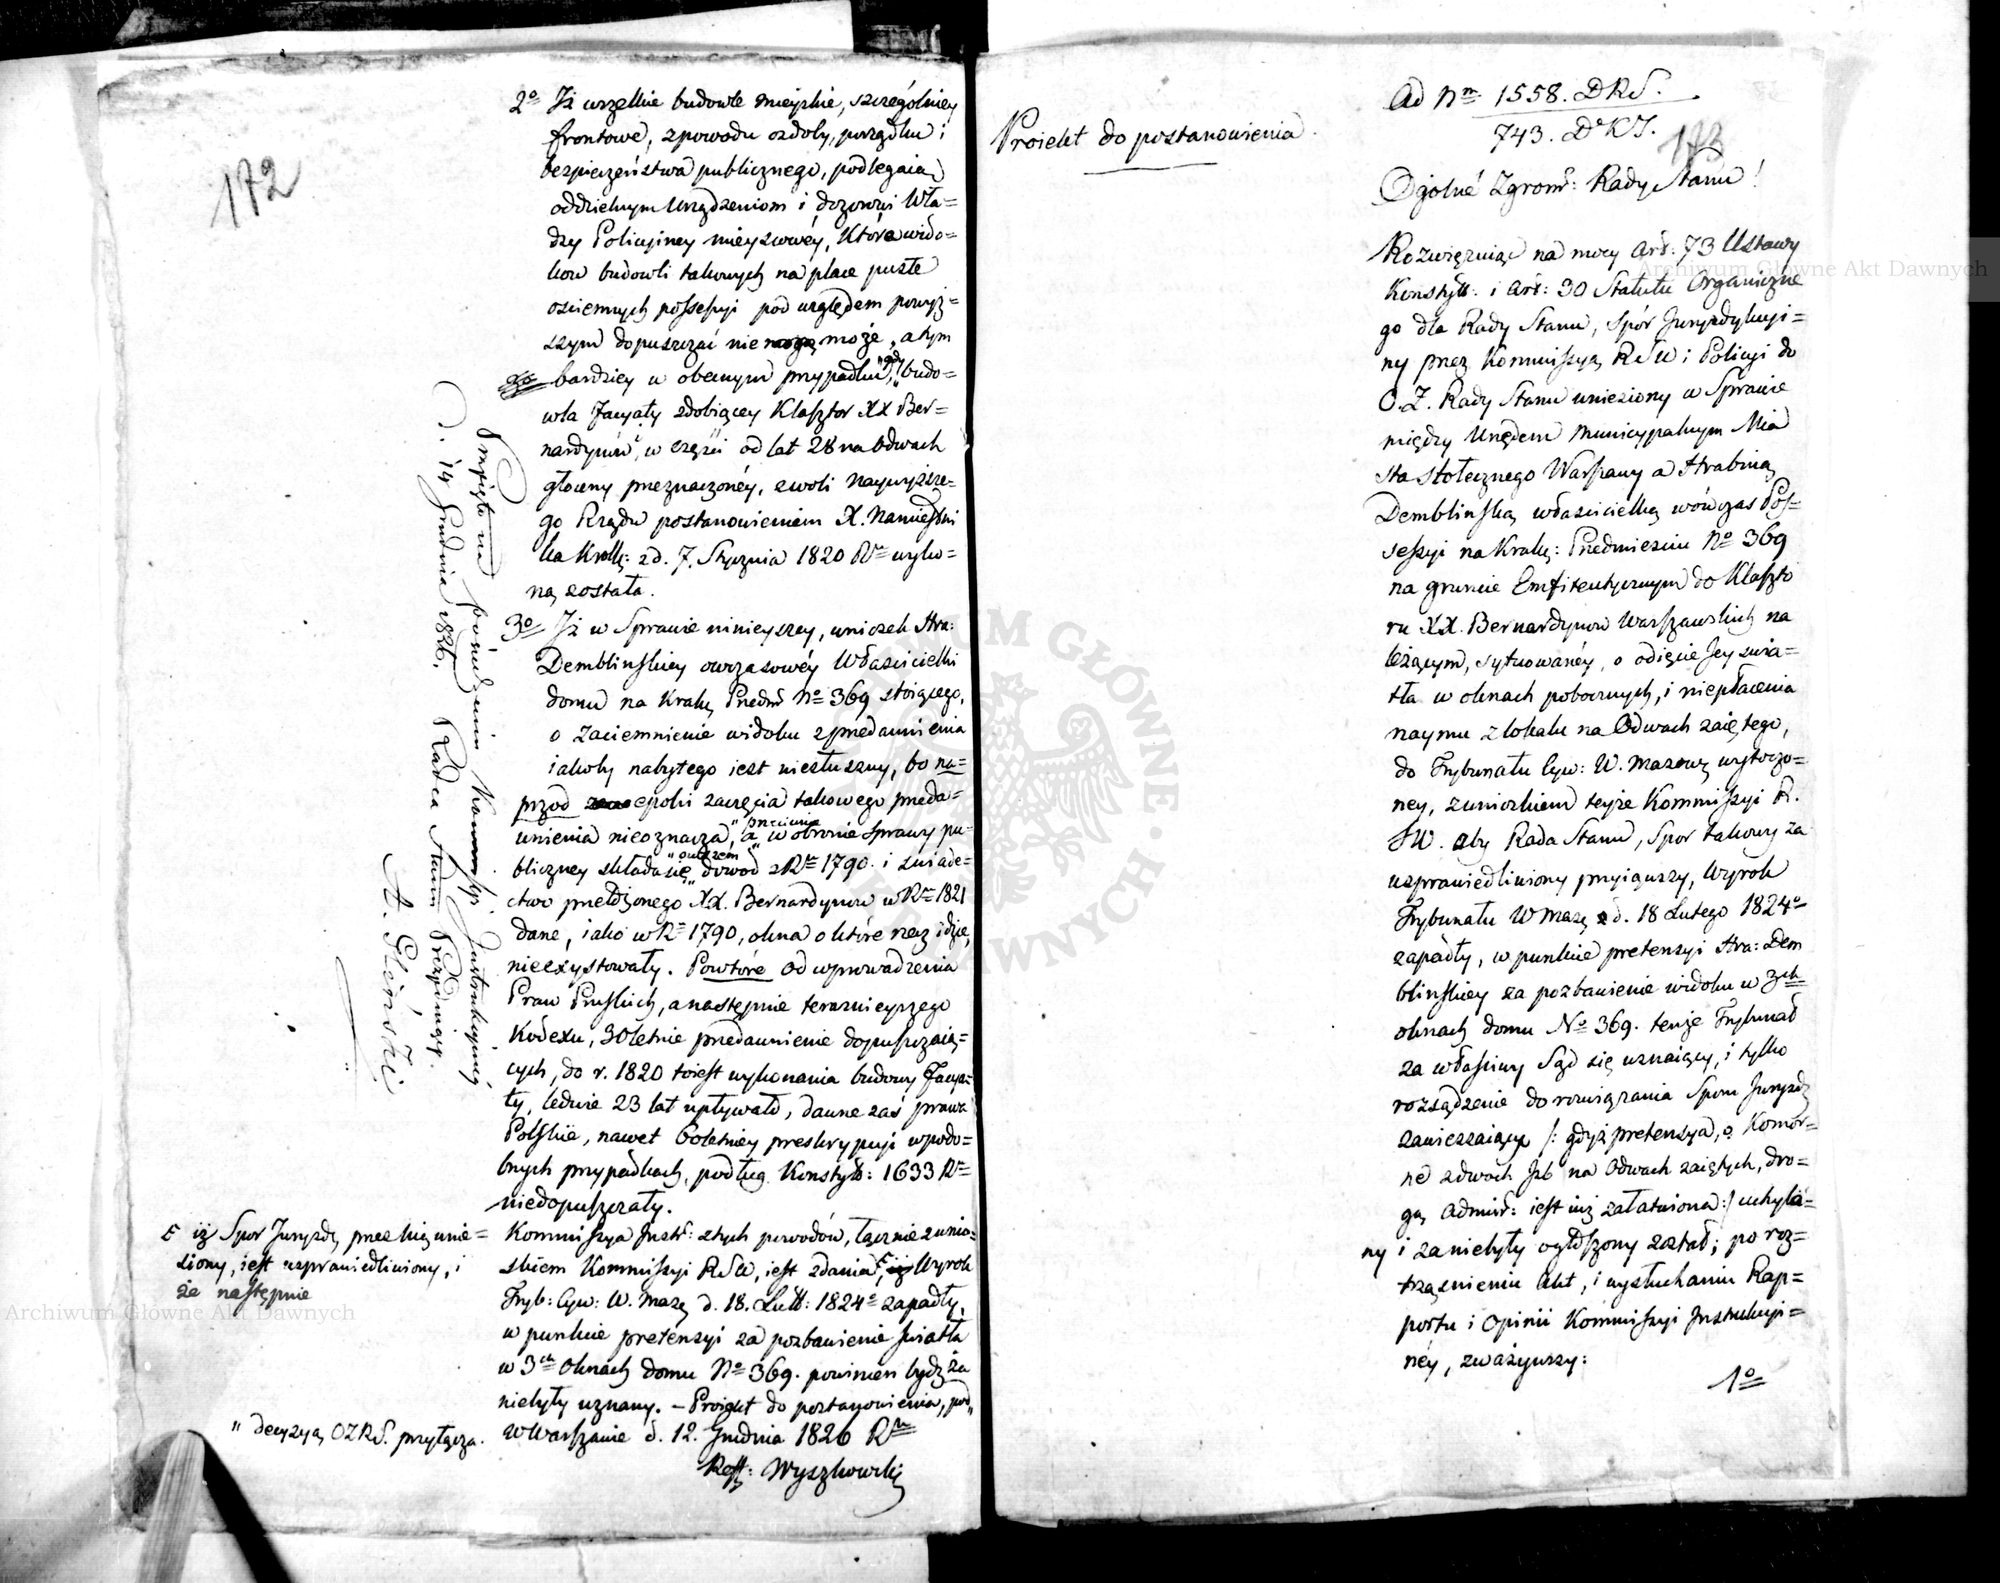 172
2o Iż wszelkie budowle mieyskie, szczególniey
frontowe, zpowodu ozdoby, porządku i
bezpieczeństwa publicznego, podlegaią
oddzielnym Urządzeniom i dozorowi Wła=
dzy Policyiney mieyscowéy, Która wido=
kow budowli takowych na place puste
ościennych possessyi pod względem powyż=
szym dopuszczać nie może, a tym
bardziey w obecnym przypadku, "gdy" budo=
wla facyaty zdobiącey Klasztor XX Ber=
nardynów, w części od lat 28 na Odwach
głowny przeznaczonéy, z woli Naywyższe=
go Rządu postanowieniem X. Namiestni
ka Krolls: z d. 7. Stycznia 1820 Rn wyko=
ną została.
3o Iż w Sprawie ninieyszey, wniosek Hra:
Demblinskiey owczasowéy Właścicielki
domu na Krak: Przedm No 369 stoiącego,
o zaciemnienie widoku z przedawnienia
iakoby nabytego iest niesłuszny, bo na=
przod epoki zaczęcia takowego przeda=
wnienia nieoznacza, "przeciwnie" a w obronie Sprawy pu=
bliczney składa się "owszem" dowod z Rn 1790. i świade=
ctwo przełożonego XX. Bernardynow w Rn 1821
dane, iako w Rn 1790, okna o które rzecz idzie,
nieexystowały. Powtóre od wprowadzenia
Praw Pruskich, a następnie teraznieyszego
Kodexu, 30letnie przedawnienie dopuszczaią=
cych, do r. 1820 toiest wykonania budowy Facya=
ty, ledwie 23 lat upływało, dawne zaś prawa
Polskie, nawet 60letniey preskrypcyi w podo=
bnych przypadkach, podług Konstyt: 1633 Rn
niedopuszczały.
Kommissya Instr: z tych powodów, łącznie z wnio=
skiem Kommissyi RSW, iest zdania, Wyrok
Tryb: Cyw: W. Maz: d. 18. Lut: 1824o zapadły,
w punkcie pretensyi za pozbawienie światła
w 3ch Oknach domu No 369. powinien bydź za
niebyły uznany. – Proiekt do postanowienia, pod
w Warszawie d. 12. Grudnia 1826 Rn
Reff: Wyszkowski
iż Spor Juryzd: przez nią wnie=
siony, iest usprawiedliwiony, i
że następnie
" decyzyą OZRS. przyłącza.
Przyięto na posiedzeniu Kommissyi Instrukcyiney
d. 14 Grudnia 1826. Radca Stanu Prezyduiący.
A. Gliński
Proiekt do postanowienia.
Ad Nm 1558. DRS.
743. DKJ.
173
Ogolné Zgrom: Rady Stanu!
Rozwięzuiąc na mocy Art: 73 Ustawy
Konstyt: i Art: 30 Statutu Organiczne
go dla Rady Stanu, Spór Juryzdykcyi=
ny przez Kommissyą RSW i Policyi do
O. Z. Rady Stanu wniesiony w Sprawie
między Urzędem Municypalnym Mia
sta stołecznego Warszawy a Hrabiną
Demblinską właścicielką wówczas Pos=
sessyi na Krak: Przedmieściu No 369
na gruncie Emfiteutycznym do Klaszto
ru XX. Bernardynow Warszawskich na
leżącym, sytuowanéy, o odięcie Jey świa=
tła w oknach pobocznych, i niepłacenia
naymu z lokalu na Odwach zaiętego,
do Trybunału Cyw: W. Mazow: wytoczo=
ney, z wnioskiem teyże Kommissyi R.
SW. aby Rada Stanu, Spor takowy za
usprawiedliwiony przyiąwszy, Wyrok
Trybunału W Maz: d. 18 Lutego 1824o
zapadły, w punkcie pretensyi Hra: Dem
blinskiey za pozbawienie widoku w 3ch
oknach domu No 369. tenże Trybunał
za właściwy Sąd się uznaiący, i tylko
rozsądzenie do rozwiązania Sporu Juryzd:
zawieszaiący /: gdyż pretensya, o Komor=
ne z dwoch Izb na Odwach zaiętych, dro=
gą Admin: iest iuż załatwiona :/ uchylo=
ny i za niebyły ogłoszony został; po roz=
trząśnieniu Akt, i wysłuchaniu Rap=
portu i Opinii Kommissyi Instrukcyi=
néy, zważywszy:
1o